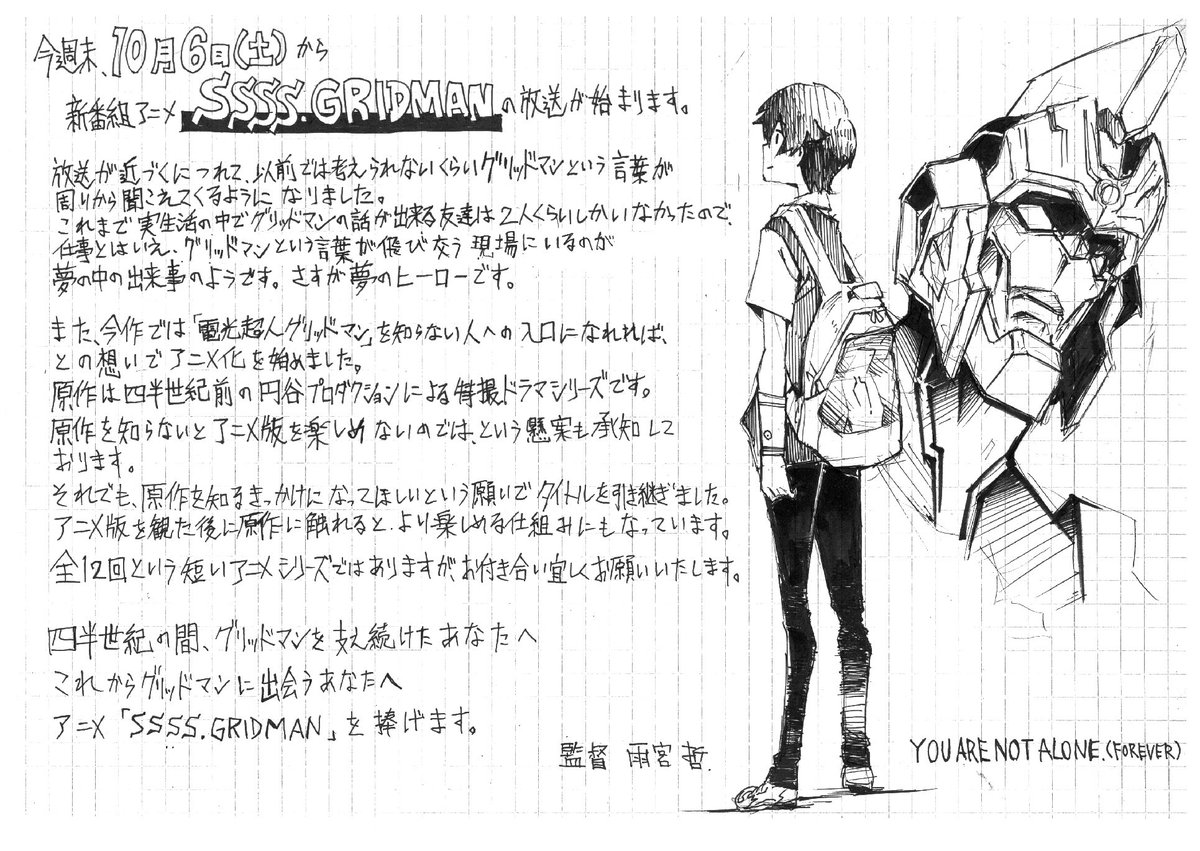 今週末、10月6日(土)から
新番組アニメSSSS.GRIDMANの放送が始まります。
放送が近づくにつれて、以前では考えられないくらいグリッドマンという言葉が
周りから聞こえてくるようになりました。
これまで実生活の中でグリッドマンの話が出来る友達は2人くらいしかいなかったので、
仕事とはいえ、グリッドマンという言葉が飛び交う現場にいるのが
夢の中の出来事のようです。さすが夢のヒーローです。
また、今作では「電光超人グリッドマン」を知らない人への入口になれれば、
との想いでアニメ化を始めました。
原作は四半世紀前の円谷プロダクションによる特撮ドラマシリーズです。
原作を知らないとアニメ版を楽しめないのでは、という懸案も承知して
おります。
それでも、原作を知るきっかけになってほしいという願いでタイトルを引き継ぎました。
アニメ版を観た後に原作に触れると、より楽しめる仕組みにもなっています。
全12回という短いアニメシリーズではありますが、お付き合い宜しくお願いいたします。
四半世紀の間、グリッドマンを支え続けたあなたへ
これからグリッドマンに出会うあなたへ
アニメ「SSSS.GRIDMAN」を捧げます。
監督 雨宮 哲.
YOU ARE NOT ALONE.(FOREVER)